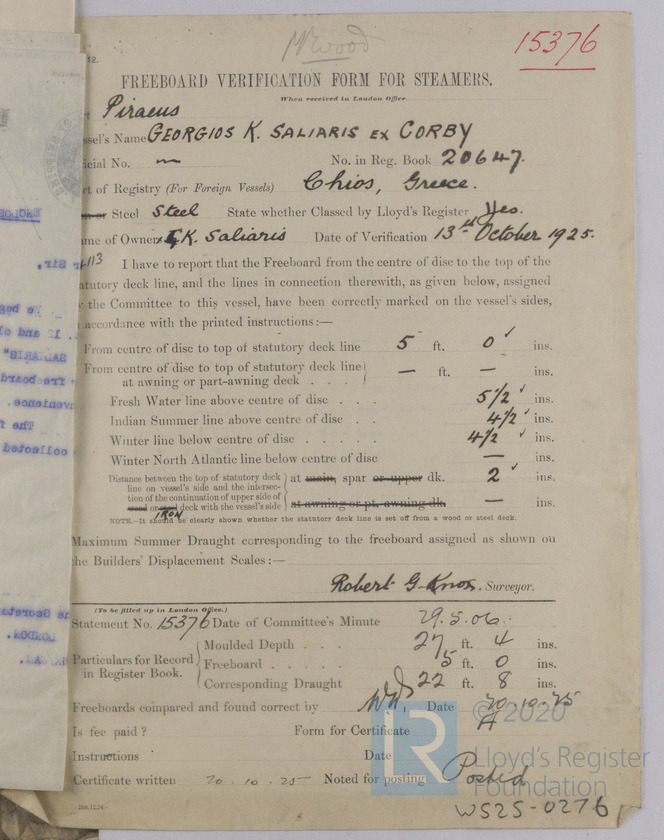 Mr Wood
15376
12.
FREEBOARD VERIFICATION FORM FOR STEAMERS.
When received in London Office
Piraeus
Name GEORGIOS K. SALIARIS EX CORBY
No. — No. in Reg. Book 20647.
of Registry (For Foreign Vessels) Chios, Greece.
Steel Steel State whether Classed by Lloyd's Register Yes.
of Owners K. Saliaris Date of Verification 13th October 1925.
I have to report that the Freeboard from the centre of disc to the top of the
deck line, and the lines in connection therewith, as given below, assigned
the Committee to this vessel, have been correctly marked on the vessel's sides,
accordance with the printed instructions:—
From centre of disc to top of statutory deck line 5 ft. 0 ✓ ins.
From centre of disc to top of statutory deck line
at awning or part-awning deck . . . — ft. — ins.
Fresh Water line above centre of disc . . . 5 1/2 ✓ ins.
Indian Summer line above centre of disc . . 4 1/2 ✓ ins.
Winter line below centre of disc . . . . . 4 1/2 ✓ ins.
Winter North Atlantic line below centre of disc — ins.
Distance between the top of statutory deck
line on vessel's side and the intersec- at main, spar or upper dk. 2 ✓ ins.
tion of the continuation of upper side of
wood or steel deck with the vessel's side at awning or pt. awning dk. — ins.
IRON
NOTE.—It should be clearly shown whether the statutory deck line is set off from a wood or steel deck.
Maximum Summer Draught corresponding to the freeboard assigned as shown on
the Builders' Displacement Scales:—
Robert G. Knox. Surveyor.
(To be filled up in London Office.)
Statement No. 15376 Date of Committee's Minute 29.5.06.
Particulars for Record in Register Book.
Moulded Depth . . . 27 ft. 4 ins.
Freeboard . . . . . 5 ft. 0 ins.
Corresponding Draught 22 ft. 8 ins.
Freeboards compared and found correct by Date 20.10.25
Is fee paid? Form for Certificate H
Instructions Date
Certificate written 20.10.25 Noted for posting Posted
© 2020
Lloyd's Register
Foundation
WS25-0276